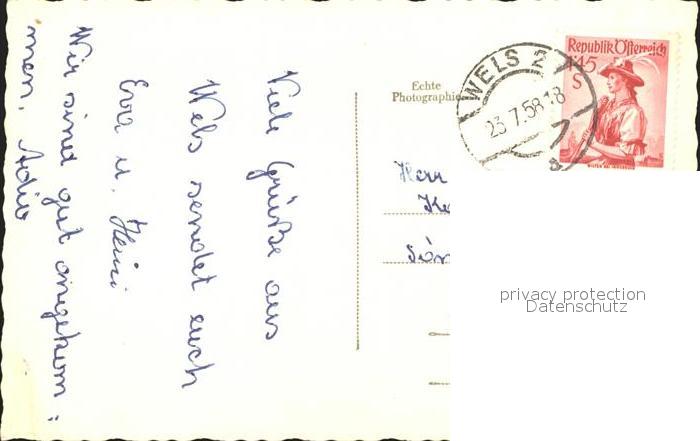 Viele Grüße aus
Wels sendet euch
Eva u. Heini
Wir sind gut angekom:
men. Adio
Echte
Photographie
WELS 2
23.7.58-18
Republik Österreich
1.45
S
Herr
privacy protection
Datenschutz